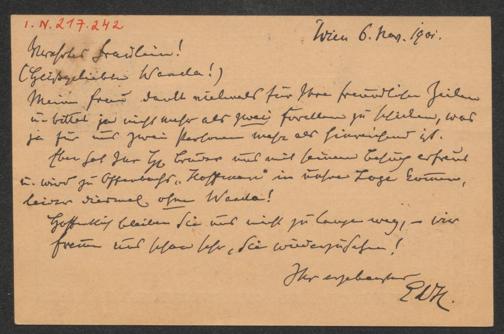 I.N.217.242
Wien 6. Nov. 1901.
Verehrtes Fräulein!
(Heißgeliebte Wanda!)
Meine Frau dankt vielmals für Ihre freundlichen Zeilen
u. bittet ja nicht mehr als zwei Forellen zu schicken, was
ja für uns zwei Personen mehr als hinreichend ist.
Eben hat Ihr Bruder uns mit seinem Besuch erfreut
u. wird zu Offenbachs „Hoffmann" in unsre Loge kommen,
leider diesmal ohne Wanda!
Hoffentlich bleiben Sie uns nicht zu lange weg, – wir
freuen uns schon sehr, Sie wiederzusehen!
Ihr ergebenster
EdH.